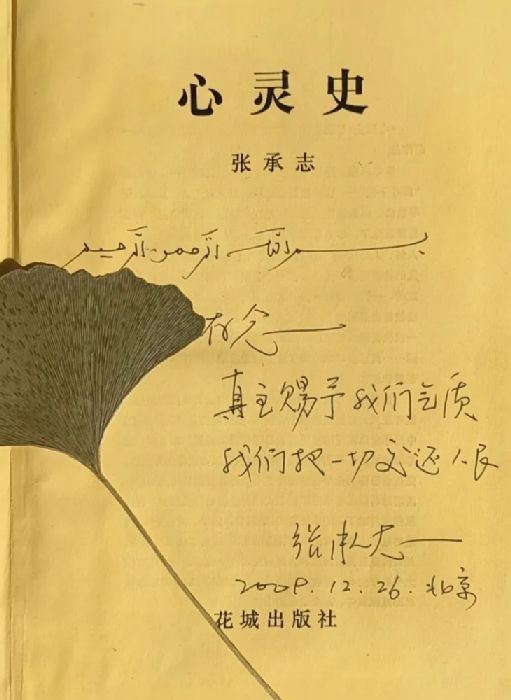 心灵史
张承志
بسم الله الرحمن الرحيم
存念
真主赐予我们气质
我们把一切交还人民
张承志
2009.12.26.北京
花城出版社